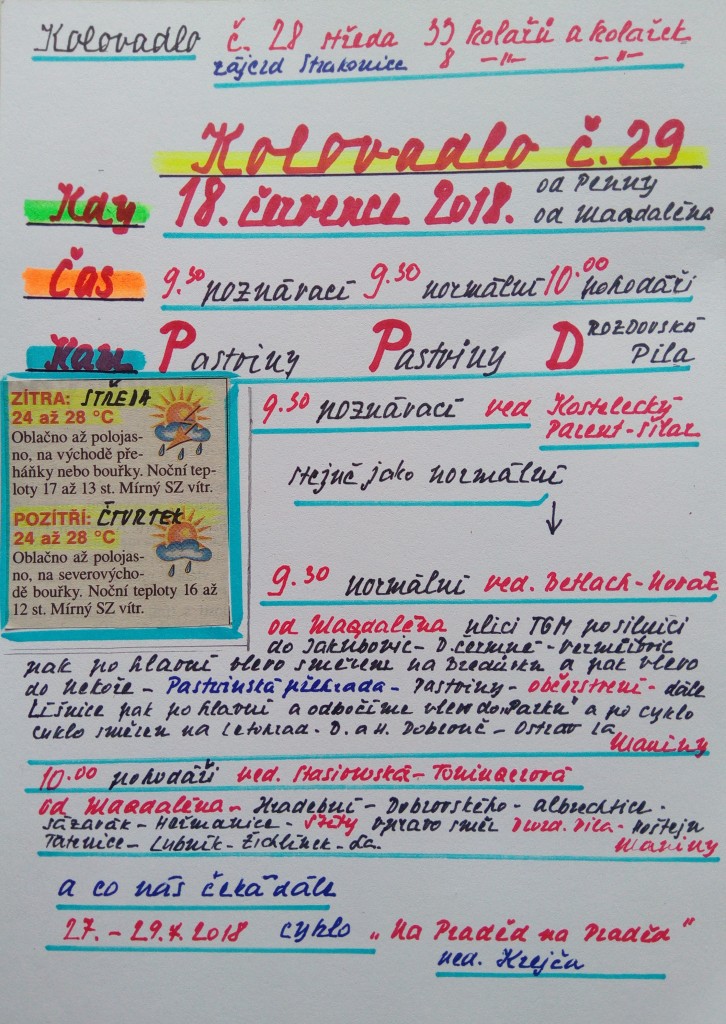 Kolovadlo č. 28 středa 33 kolařů a kolařek
zájezd Strakonice 8 -"- -"-
Kolovadlo č. 29
Kdy 18. července 2018. od Penny
od Magdaléna
Čas 9.30 poznávací 9.30 normální 10.00 pohodáři
Kam Pastviny Pastviny Drozdovská
Pila
ZÍTRA: STŘEDA
24 až 28 °C
Oblačno až polojas-
no, na východě pře-
háňky nebo bouřky. Noční tep-
loty 17 až 13 st. Mírný SZ vítr.
POZÍTŘÍ: ČTVRTEK
24 až 28 °C
Oblačno až polojas-
no, na severovýcho-
dě bouřky. Noční teploty 16 až
12 st. Mírný SZ vítr.
9.30 poznávací ved Kostelecký
Parent-Silar
stejně jako normální
↓
9.30 normální ved. Betlach-Novák
od Magdaléna ulicí TGM po silnici
do Jakubovic- D.Čermné - Verměřovic
pak po hlavní vlevo směrem na Bredůvku a pak vlevo
do Nekoře - Pastvinská přehrada - Pastviny - občerstvení - dále
Lišnice pak po hlavní a odbočíme vlevo do "Parku" a po cyklo
cyklo směrem na Letohrad - D. a H. Dobrouč - Ostrov La
Mariny
10.00 pohodáři ved. Stasiowská-
od Magdaléna - Hradební - Dobrovského - Albrechtice -
Sázava - Heřmanice - Štíty vpravo směr Drozd. Pila - Hoštejn
Tatenice - Lubník - Žichlínek - La.
Mariny
a co nás čeká dále
27. - 29.7. 2018 cyklo „Na Praděd na Praděd"
ved. Krejča